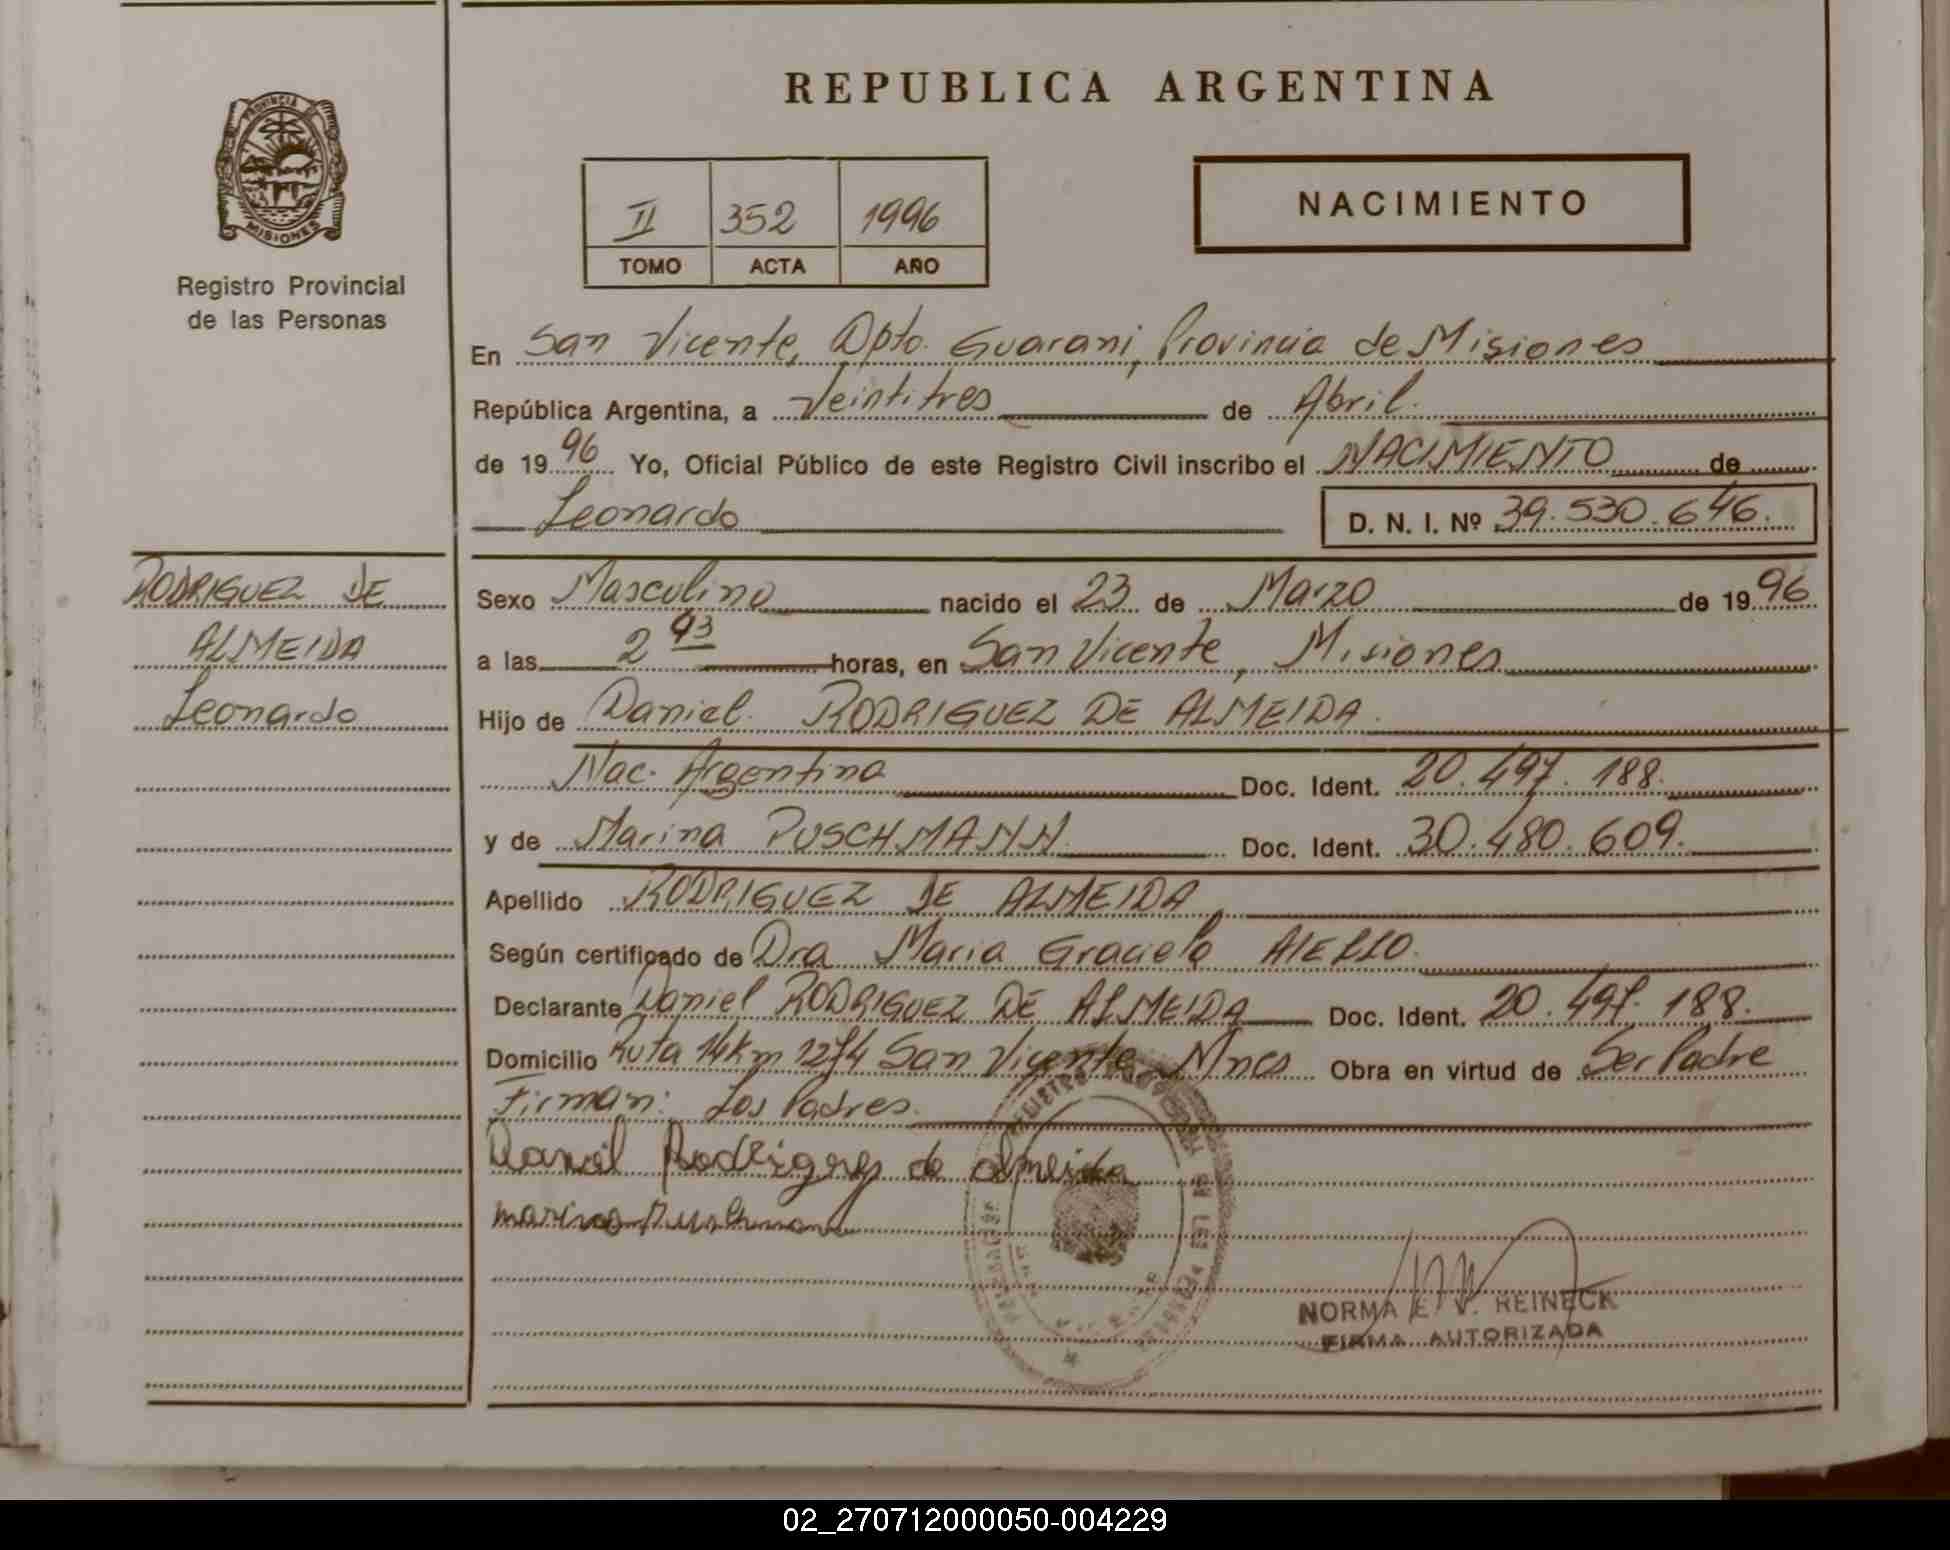 REPUBLICA ARGENTINA
PROVINCIA DE
MISIONES
Registro Provincial
de las Personas
II 352 1996
TOMO ACTA AÑO
NACIMIENTO
En San Vicente, Dpto. Guarani, Provincia de Misiones
República Argentina, a Veintitres de Abril.
de 1996 Yo, Oficial Público de este Registro Civil inscribo el NACIMIENTO de
Leonardo D. N. I. Nº 39.530.646.
RODRIGUEZ DE
ALMEIDA
Leonardo
Sexo Masculino nacido el 23 de Marzo de 1996
a las 2 43 horas, en San Vicente, Misiones
Hijo de Daniel. RODRIGUEZ DE ALMEIDA.
Nac. Argentina Doc. Ident. 20.497.188.
y de Marina PUSCHMANN. Doc. Ident. 30.480.609.
Apellido RODRIGUEZ DE ALMEIDA
Según certificado de Dra Maria Graciela AIELLO.
Declarante Daniel RODRIGUEZ DE ALMEIDA Doc. Ident. 20.497.188.
Domicilio Ruta 14 km 1274 San Vicente Mnes Obra en virtud de Ser Padre
Firman: Los Padres.
de almeida
marina
NORMA E. V. REINECK
FIRMA AUTORIZADA
02_270712000050-004229